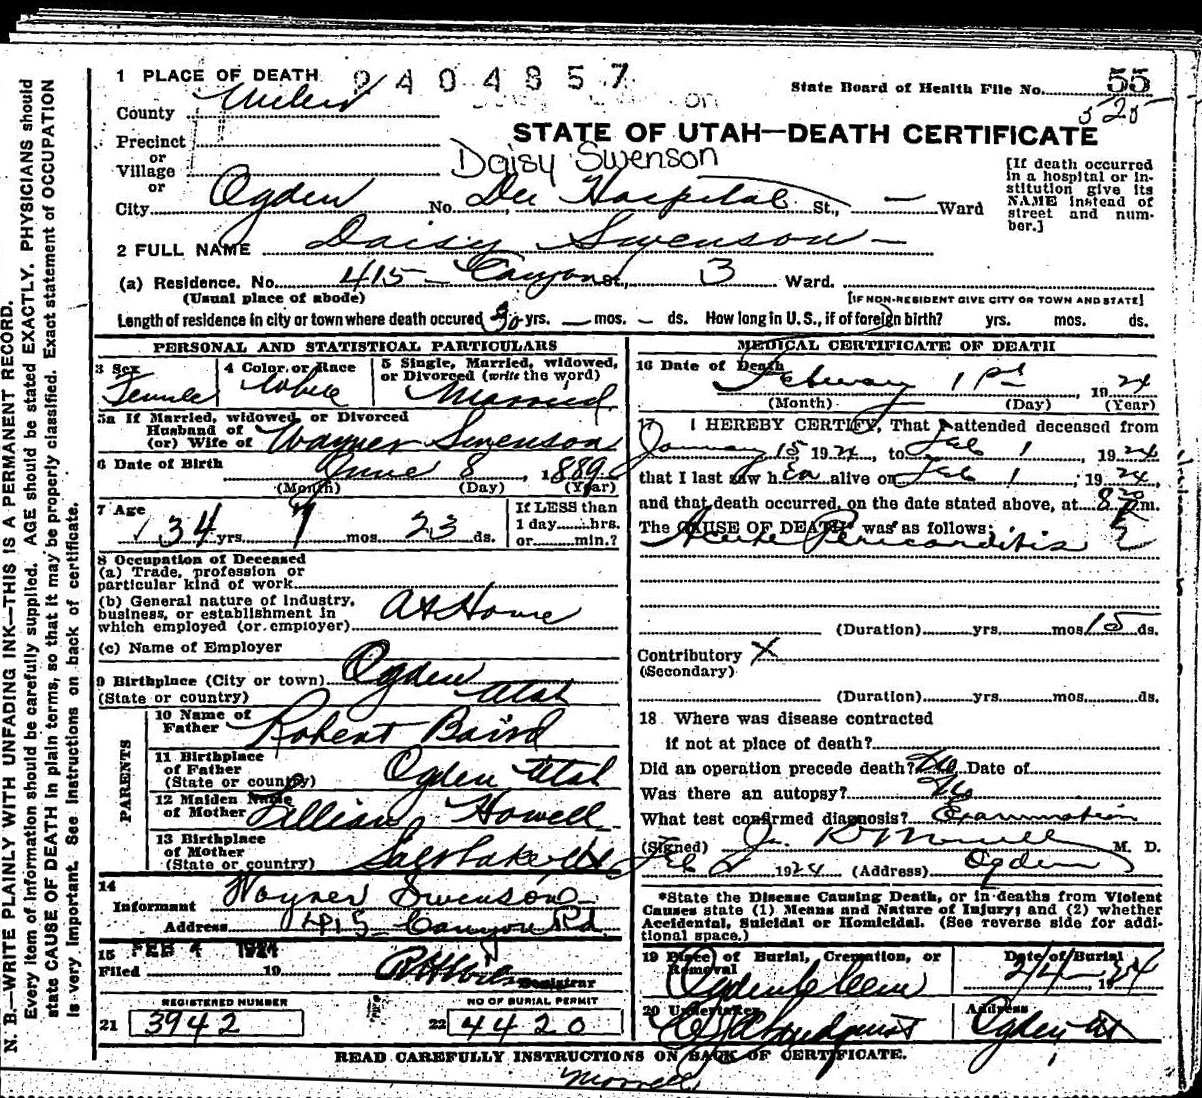 N. B.—WRITE PLAINLY WITH UNFADING INK—THIS IS A PERMANENT RECORD.
Every item of information should be carefully supplied. AGE should be stated EXACTLY. PHYSICIANS should
state CAUSE OF DEATH in plain terms, so that it may be properly classified. Exact statement of OCCUPATION
is very important. See instructions on back of certificate.
1 PLACE OF DEATH 2404857
State Board of Health File No. 55
525
County Weber
STATE OF UTAH—DEATH CERTIFICATE
Precinct
or
Village
or
Daisy Swenson
[If death occurred in a hospital or institution give its NAME instead of street and number.]
City Ogden No. Dee Hospital St., — Ward
2 FULL NAME Daisy Swenson
(a) Residence. No. 415 Canyon St., 3 Ward.
(Usual place of abode)
[IF NON-RESIDENT GIVE CITY OR TOWN AND STATE]
Length of residence in city or town where death occured 30 yrs. — mos. — ds. How long in U. S., if of foreign birth? yrs. mos. ds.
PERSONAL AND STATISTICAL PARTICULARS
3 Sex Female
4 Color or Race White
5 Single, Married, widowed, or Divorced (write the word) Married
5a If Married, widowed, or Divorced
Husband of
(or) Wife of Wayner Swenson
6 Date of Birth June 8, 1889
(Month) (Day) (Year)
7 Age 34 yrs. 7 mos. 23 ds.
If LESS than
1 day......hrs.
or......min.?
8 Occupation of Deceased
(a) Trade, profession or
particular kind of work
(b) General nature of industry,
business, or establishment in
which employed (or employer) At Home
(c) Name of Employer
9 Birthplace (City or town) Ogden
(State or country) Utah
PARENTS
10 Name of
Father Robert Baird
11 Birthplace
of Father
(State or country) Ogden Utah
12 Maiden Name
of Mother Lillian Howell
13 Birthplace
of Mother
(State or country) Salt Lake
14
Informant Wayner Swenson
Address 415 Canyon Rd.
15 FEB 4 1924
Filed 19
Registrar
REGISTERED NUMBER
21 3942
NO OF BURIAL PERMIT
22 4420
MEDICAL CERTIFICATE OF DEATH
16 Date of Death
February 1st, 1924
(Month) (Day) (Year)
17 I HEREBY CERTIFY, That I attended deceased from
January 15 1924, to Feb 1, 1924
that I last saw her alive on Feb 1, 1924,
and that death occurred, on the date stated above, at 8 m.
The CAUSE OF DEATH* was as follows:
Acute Pericarditis
(Duration) yrs. mos. 15 ds.
Contributory X
(Secondary)
(Duration) yrs. mos. ds.
18 Where was disease contracted
if not at place of death?
Did an operation precede death? No Date of
Was there an autopsy? No
What test confirmed diagnosis? Examination
(Signed) Morrell M. D.
Feb 2 1924 (Address) Ogden
*State the Disease Causing Death, or in deaths from Violent
Causes state (1) Means and Nature of Injury; and (2) whether
Accidental, Suicidal or Homicidal. (See reverse side for additional space.)
19 Place of Burial, Cremation, or Removal
Ogden Cem
Date of Burial
2/4 1924
20 Undertaker
Address
Ogden Ut
READ CAREFULLY INSTRUCTIONS ON BACK OF CERTIFICATE.
Morrell